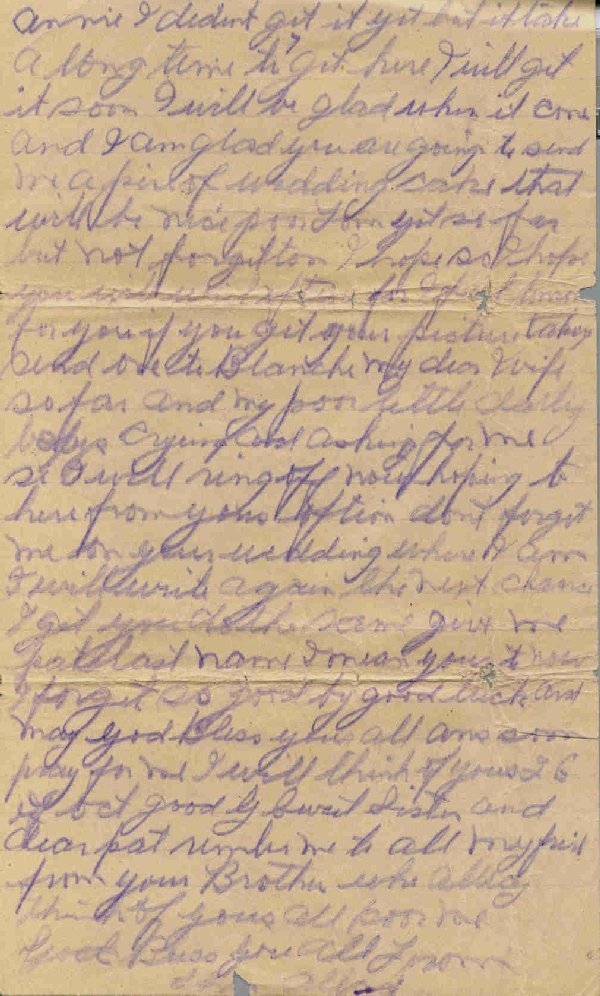 annie I dident get it yet but it take
a long time to get here I will get
it soon I will be glad when it come
and I am glad you are going to send
me a pice of wedding cake that
will be nice poor Tom yet so far
but not forgotton I hope so I hope
you will
for you if you get your picture taken
send one to Blanche my dear Wife
so far and my poor little
babys crying and asking for me
so I will ring off now hoping to
here from yous oftion dont forget
me on your wedding where I am
I will write again the next chance
I get you do the same give me
pats last name I mean yours now
I forget so good by good luck and
may god bless yous all ans soon
pray for me I will think of yous 26
of oct good by sweet sister and
dear pat rember me to all my
from your Brother who allway
think of yous all poor me
God Bless you all From